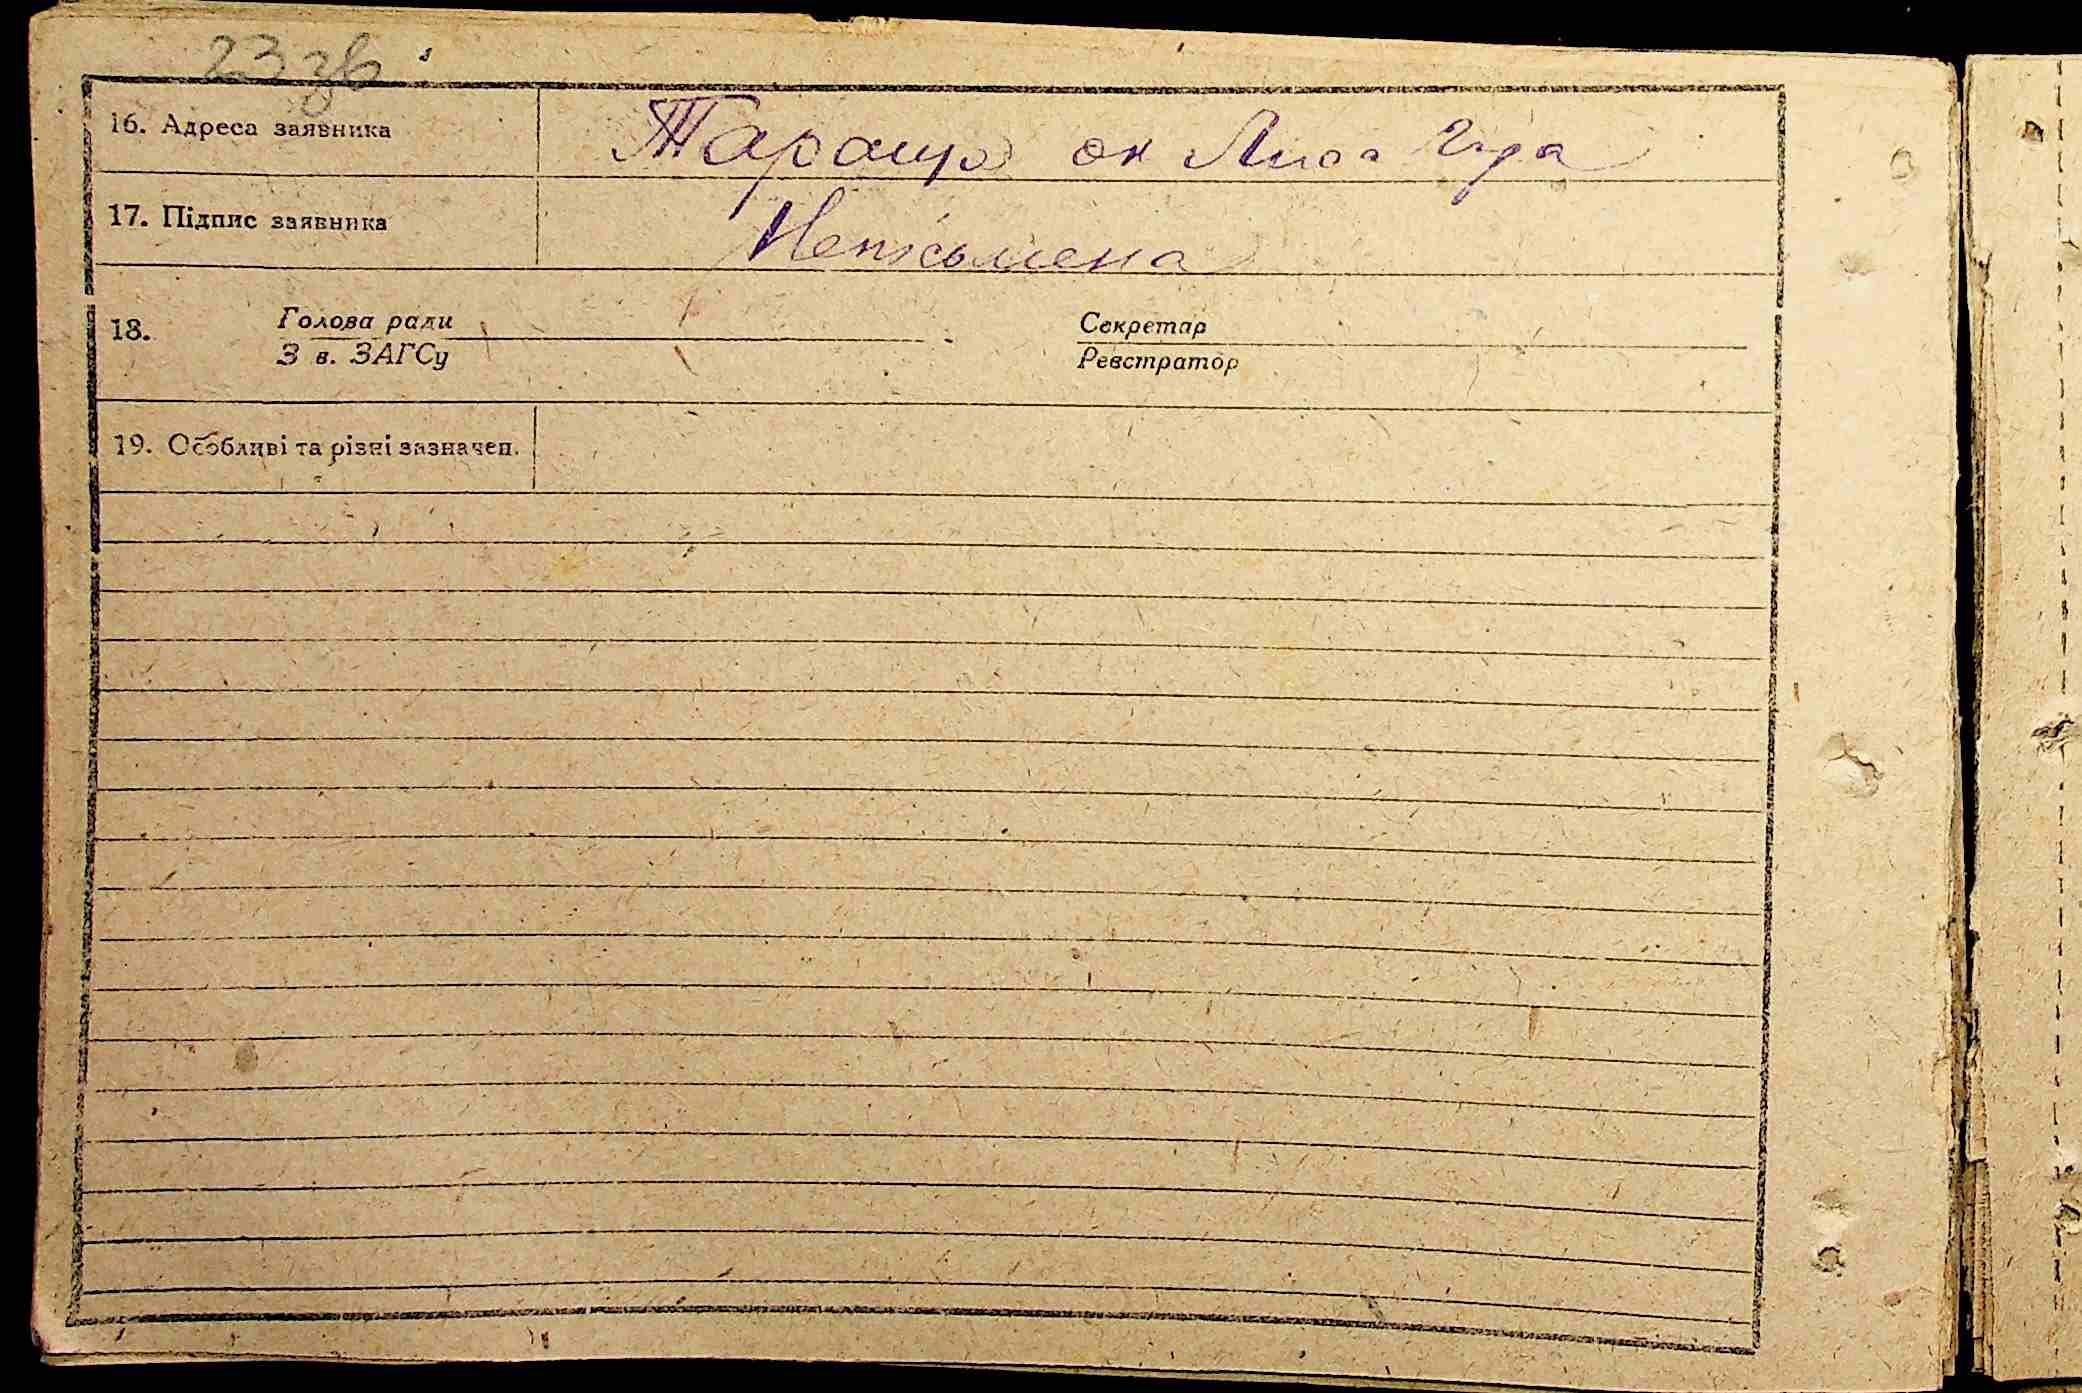 23 зв
16. Адреса заявника Тараща ок Лиса Гора
17. Підпис заявника Неписьмена
18. Голова ради Секретар
З в. ЗАГСу Реєстратор
19. Особливі та різні зазначен.